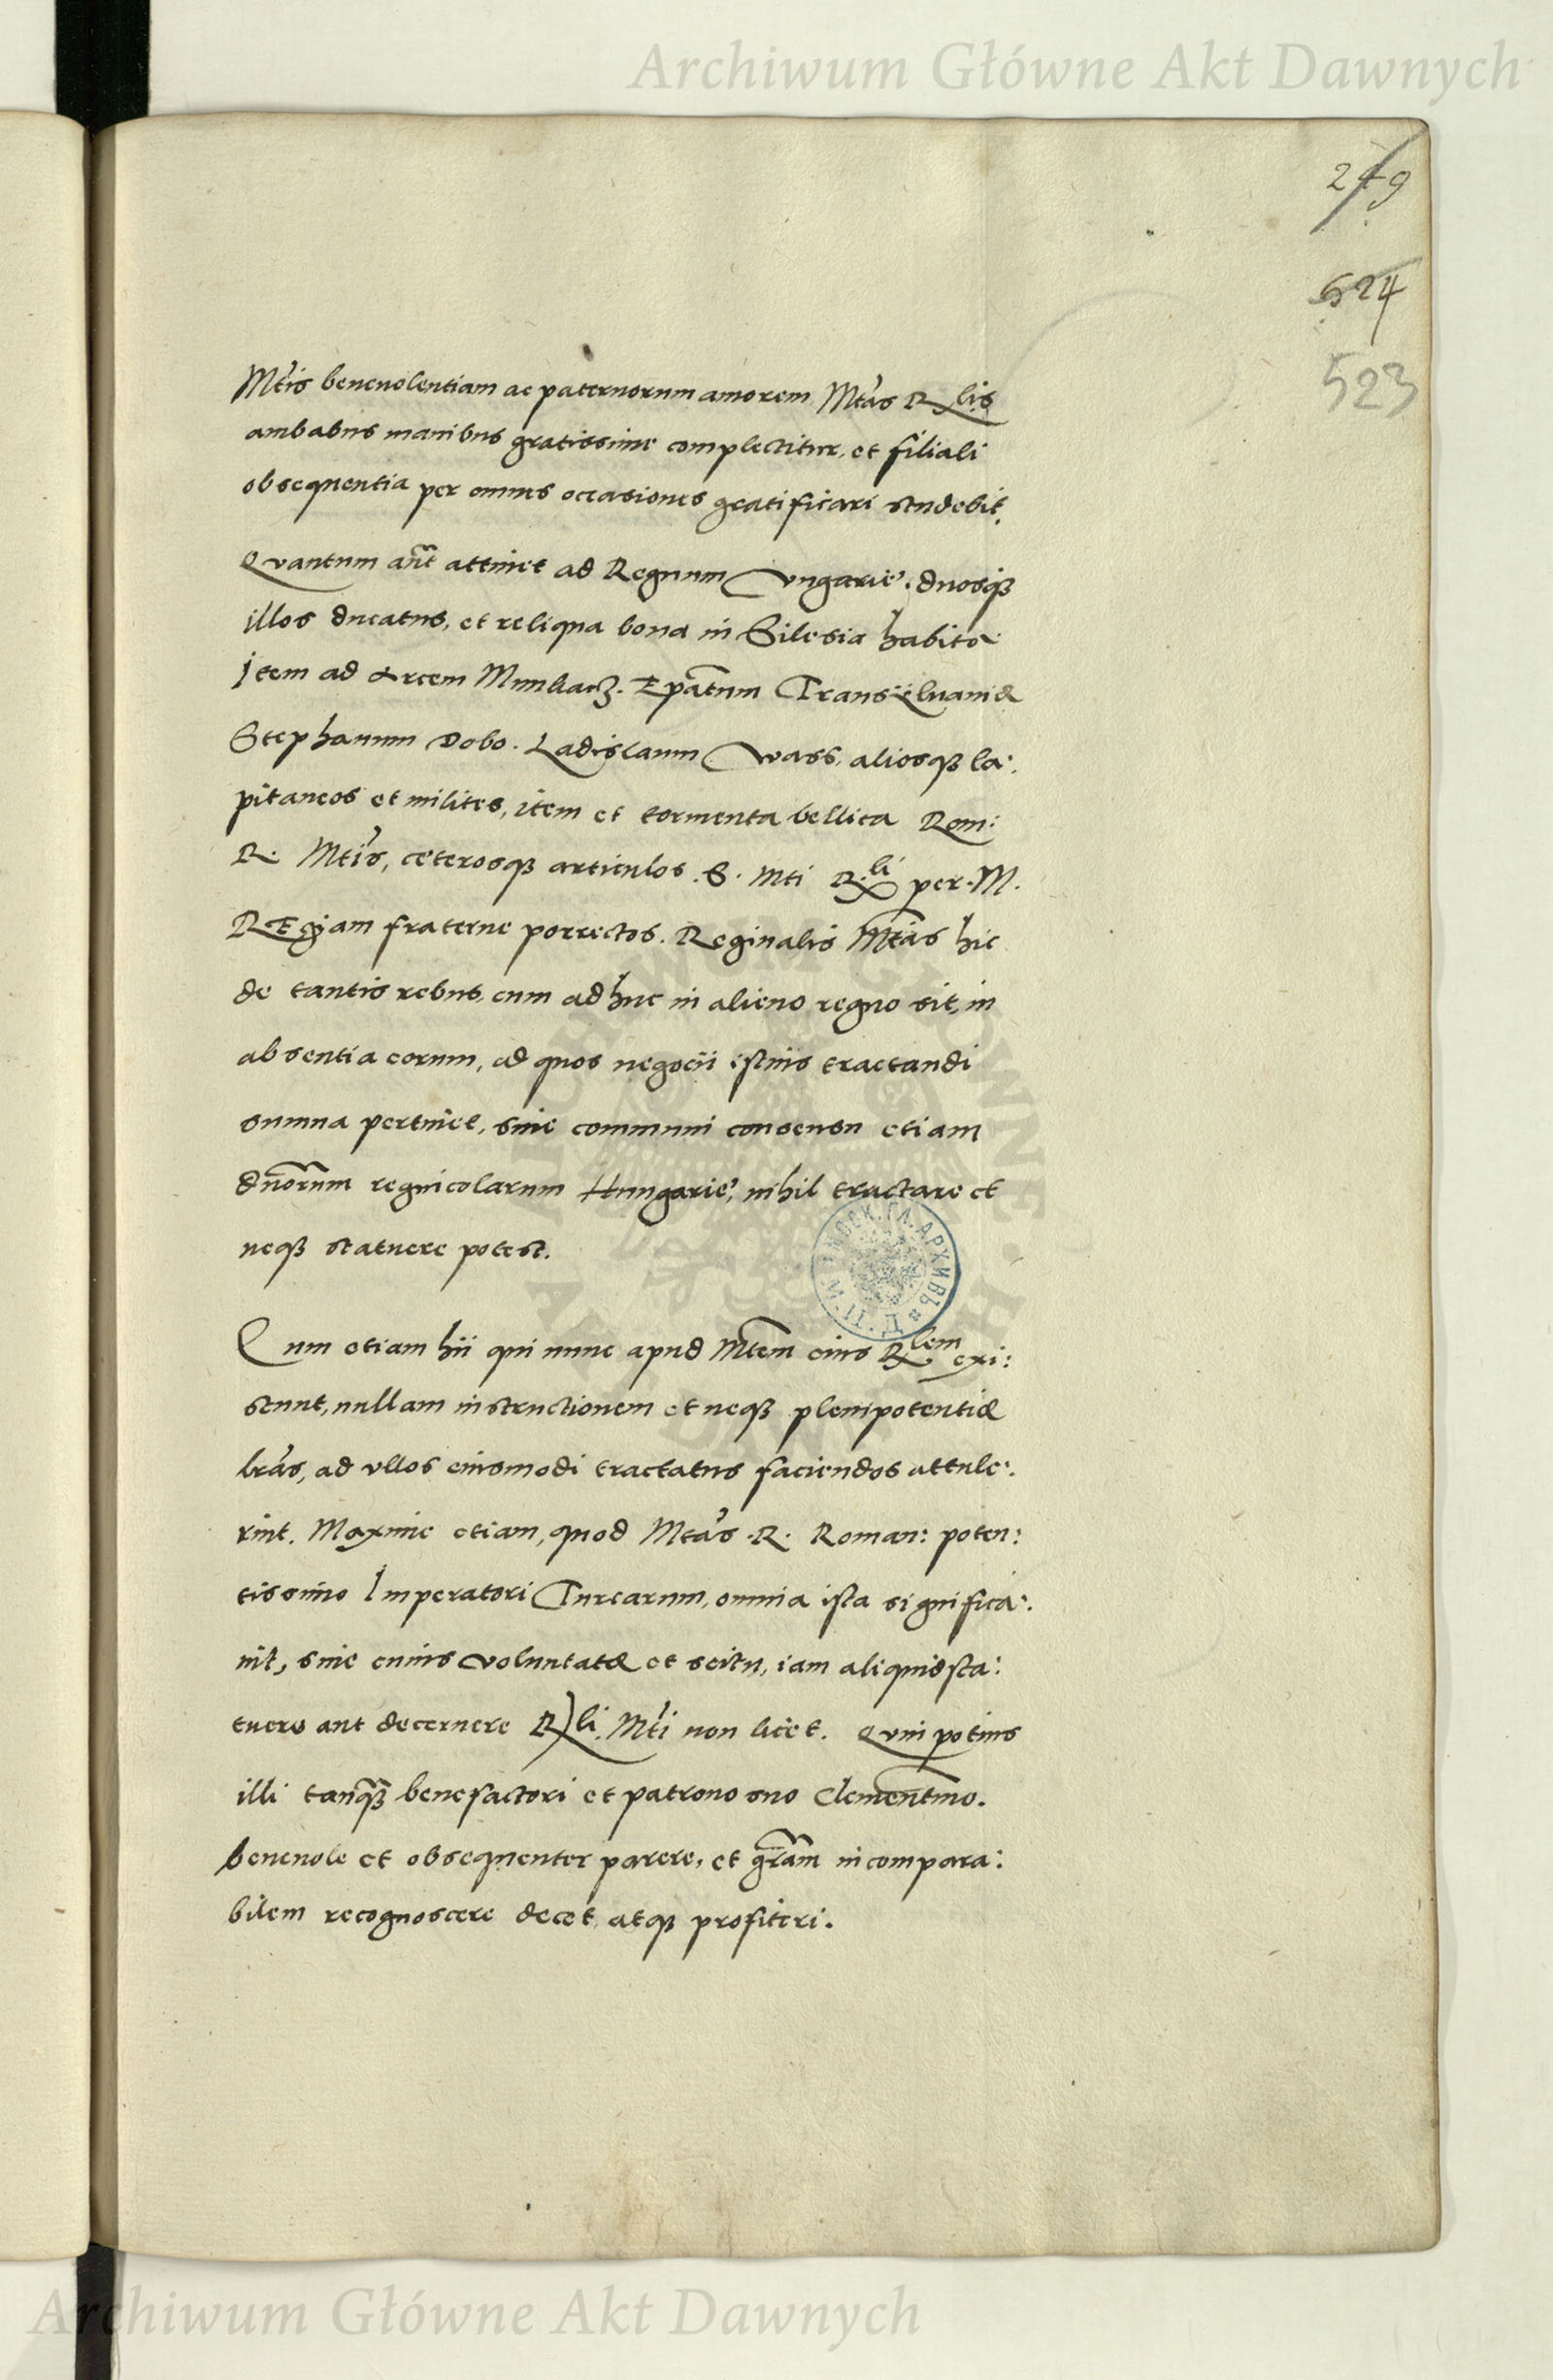 Archiwum Główne Akt Dawnych
249
524
523
Mtis benevolentiam ac paternorum amorem Mtas Rlis
ambabus manibus gratissime complectitur, et filiali
obsequentia per omnes occasiones gratificari studebit.
Quantum aut attinet ad Regnum Vngarie, duosq3
illos ducatus, et reliqua bona in Silesia habita
Item ad Arcem Munkacz. Epatum Transylvaniæ
Stephanum Dobo. Ladislaum Wass, aliosq3 Ca:
pitaneos et milites, item et tormenta bellica Rom:
R. Mtis, ceterosq3 articulos .S. Mti R.li per .M.
REgiam fraterne porrectos. Reginalis Mtas hic
de tantis rebus, cum adhuc in alieno regno sit, in
absentia eorum, ad quos negocii istius tractandi
summa pertinet, sine communi consensu etiam
dnorum regnicolarum Hungarie, nihil tractare et
neq3 statuere potest.
Qum etiam hii qui nunc apud Mtem eius Rlem exi:
stunt, nullam instructionem et neq3 plenipotentiæ
lras, ad vllos eiusmodi tractatus faciendos attule:
rint. Maxime etiam, quod Mtas .R. Roman: poten:
tissimo Imperatori Turcarum, omnia ista significa:
uit, sine cuius voluntate et scitu, iam aliquid sta:
tuere aut decernere Rli. Mti non licet. Quin potius
illi tanq3 benefactori et patrono suo Clementmo.
beneuole et obsequenter parere, et gram incompara:
bilem recognoscere decet, atq3 profiteri.
Archiwum Główne Akt Dawnych